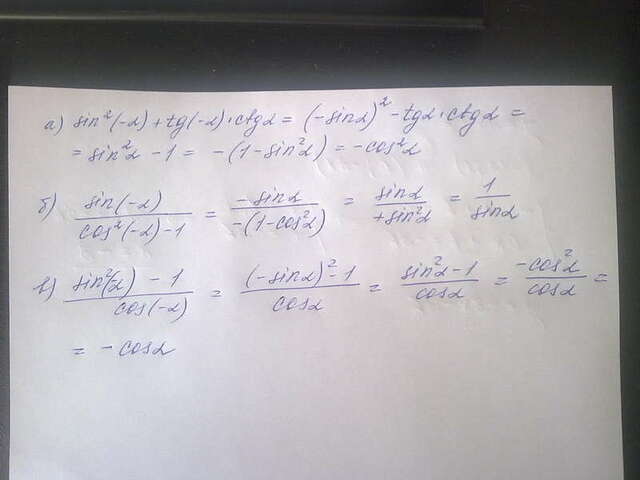 а) sin²(-α) + tg(-α)·ctgα = (-sinα)² - tgα·ctgα =
= sin²α - 1 = -(1-sin²α) = -cos²α
б) sin(-α) / (cos²(-α) - 1) = -sinα / -(1-cos²α) = sinα / +sin²α = 1 / sinα
в) (sin²(α) - 1) / cos(-α) = ((-sinα)² - 1) / cosα = (sin²α - 1) / cosα = -cos²α / cosα =
= -cosα